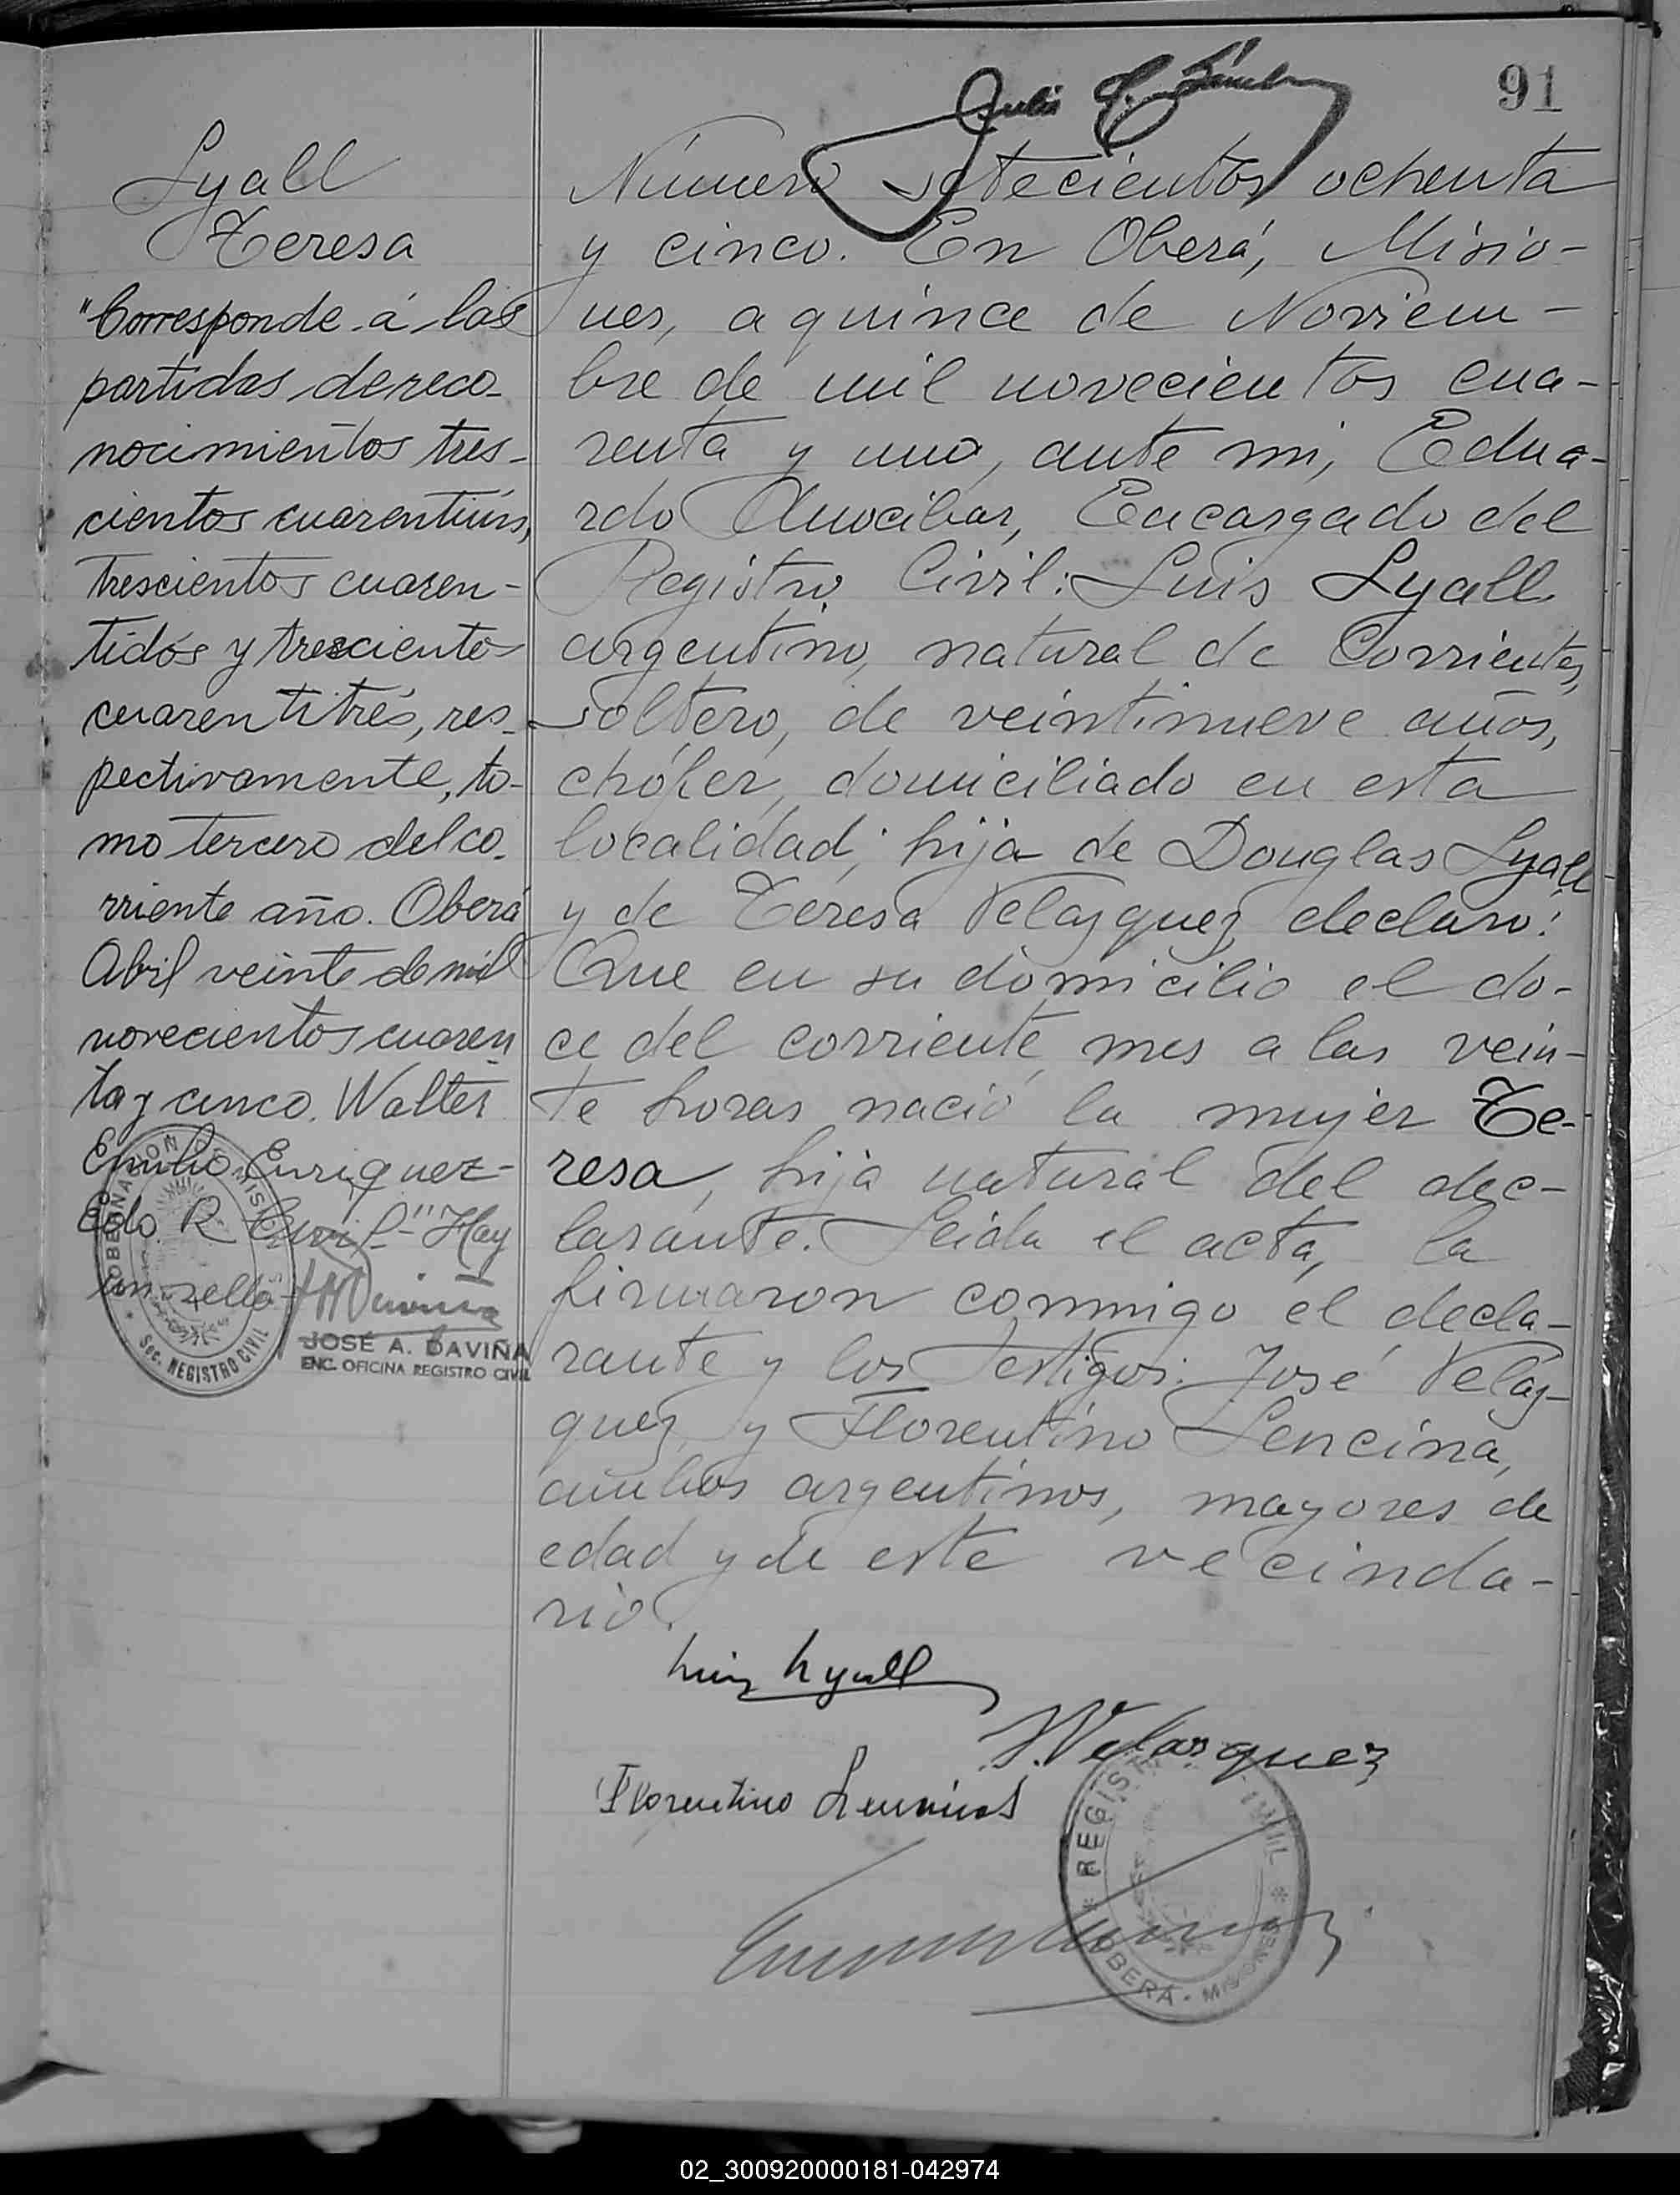 91
Julio
Lyall
Teresa
"Corresponde á las
partidas de reco-
nocimientos tres-
cientos cuarentiún,
trescientos cuaren-
tidós y trescientos
cuarentitrés, res-
pectivamente, to-
mo tercero del co-
rriente año. Oberá
Abril veinte de mil
novecientos cuaren
ta y cinco. Walter
Emilio Enriquez-
Edo. R. Civil-" Hay
un sello-
GOBERNACION DE MISIONES
Sec. REGISTRO CIVIL
JOSÉ A. DAVIÑA
ENC. OFICINA REGISTRO CIVIL
Número setecientos ochenta
y cinco. En Oberá, Misio-
nes, a quince de Noviem-
bre de mil novecientos cua-
renta y uno, ante mi, Edua-
rdo Amocibar, Encargado del
Registro Civil: Luis Lyall
argentino, natural de Corrientes,
soltero, de veintinueve años,
chófer, domiciliado en esta
localidad; hijo de Douglas Lyall
y de Teresa Velazquez declaro:
Que en su domicilio el do-
ce del corriente mes a las vein-
te horas nació la mujer Te-
resa, hija natural del dec-
larante. Leida el acta, la
firmaron conmigo el decla-
rante y los testigos: José Veláz-
quez y Florentino Lencina,
ambos argentinos, mayores de
edad y de este vecinda-
rio.
Luis Lyall
J. Velazquez
Florentino
REGISTRO CIVIL
OBERÁ - MISIONES
02_300920000181-042974